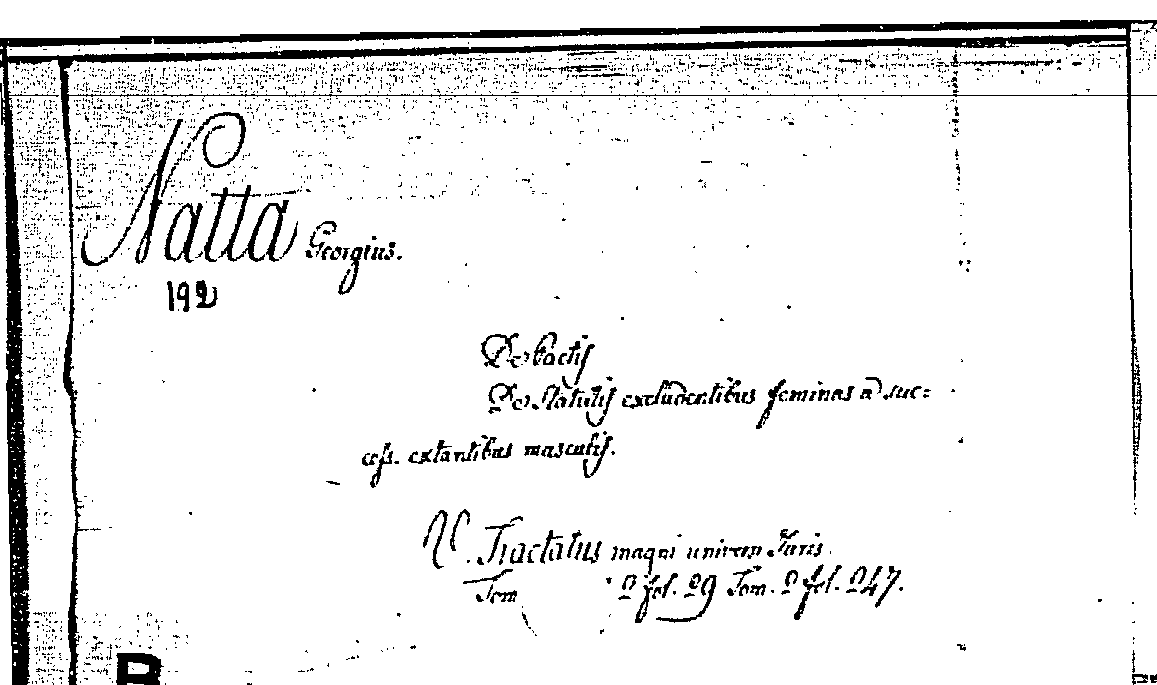 Natta Georgius.
192
De Pactis
De Statutis excludentibus feminas a suc=
cess. extantibus masculis.
V. Tractatus magni univers Juris.
Tom 2 fol. 29 Tom. 2 fol. 247.
B